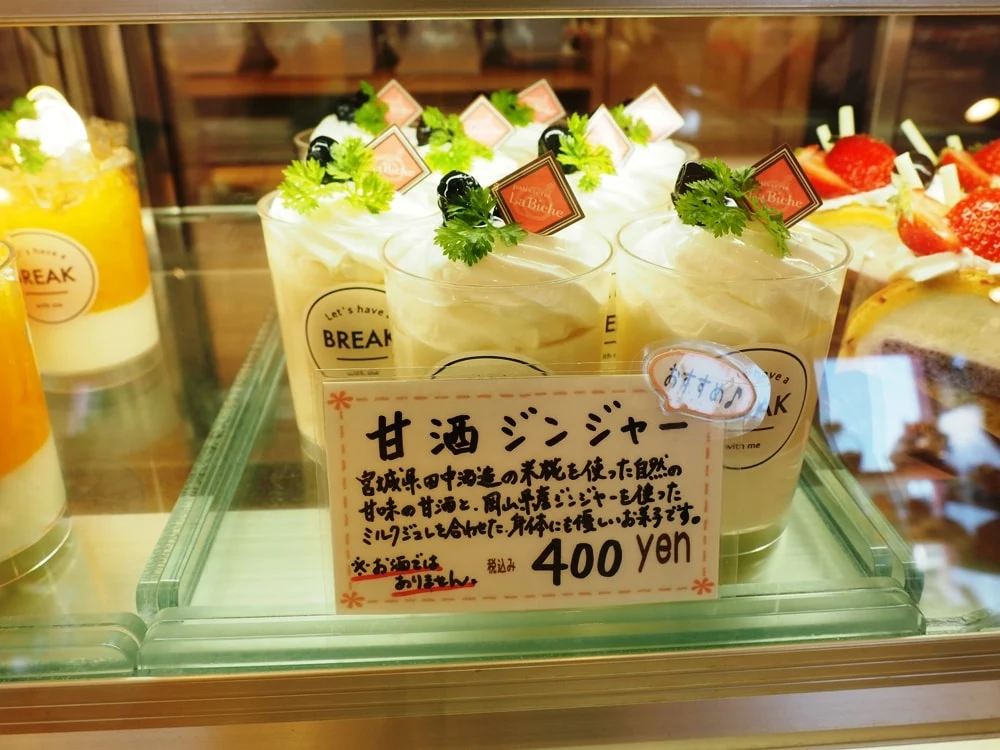 Let's have a
BREAK
with me
LaBiche
LaBiche
Let's have
BREAK
with me
おすすめ♪
甘酒ジンジャー
宮城県田中酒造の米糀を使った自然の
甘味の甘酒と、岡山県産ジンジャーを使った
ミルクジュレを合わせた、身体にも優しいお菓子です。
※お酒では
ありません。
税込み 400 yen
have a
BREAK
with me